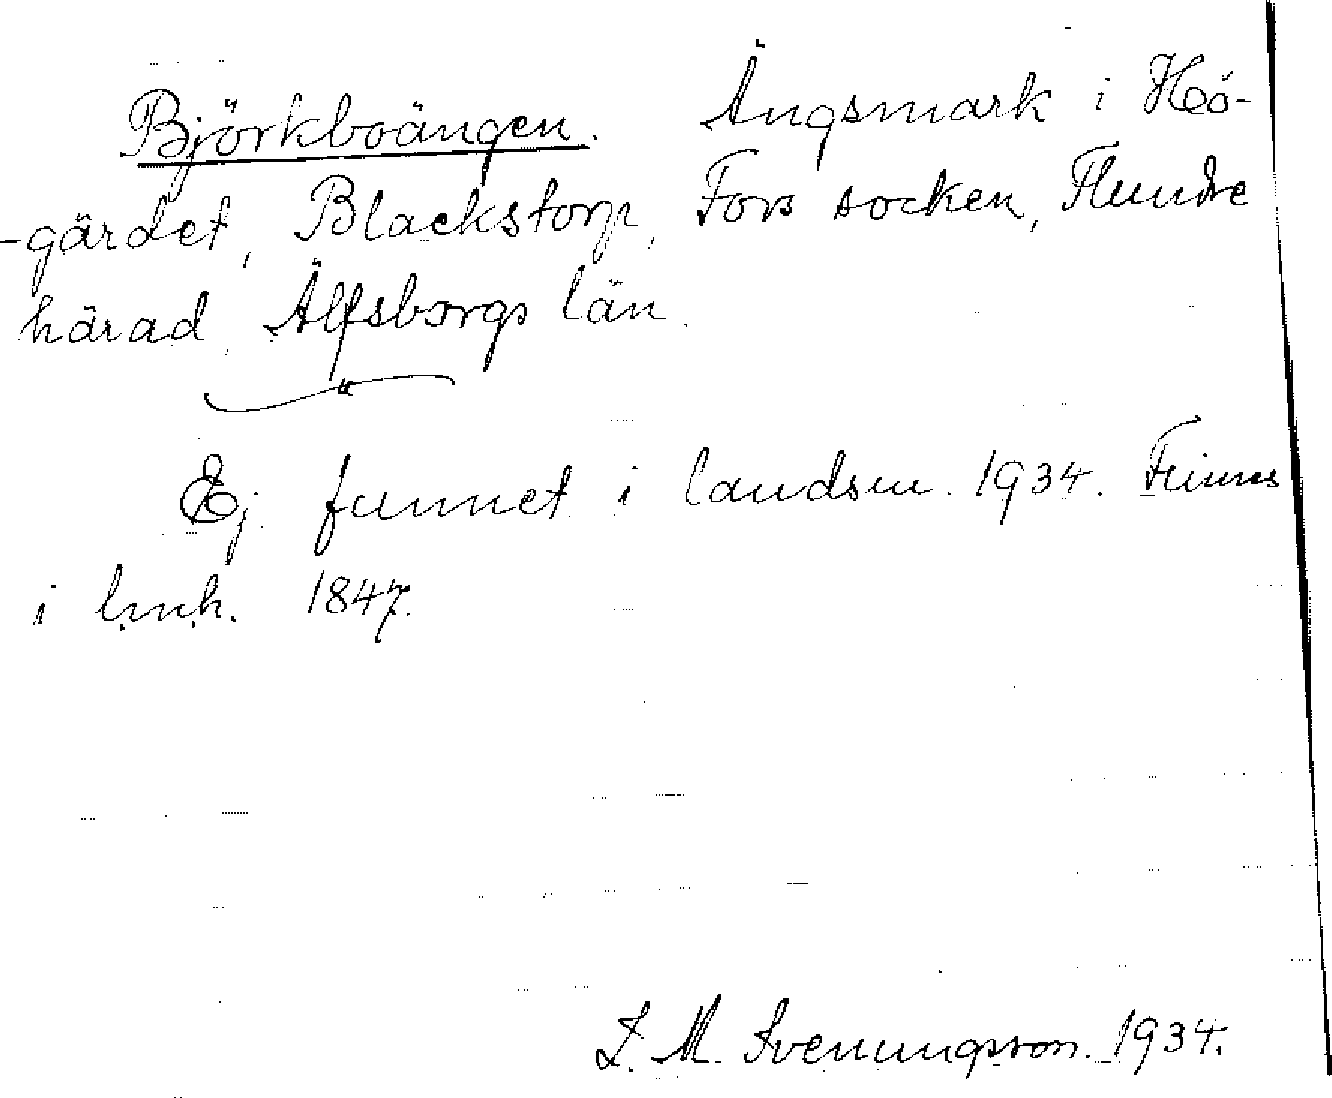 Björkboängen. Ängsmark i Hö-
-gärdet, Blackstorp, Fors socken, Flundre
härad, Älfsborgs län.
Ej funnet i landsm. 1934. Finnes
i lmh. 1847.
J. M. Svenungsson. 1934.